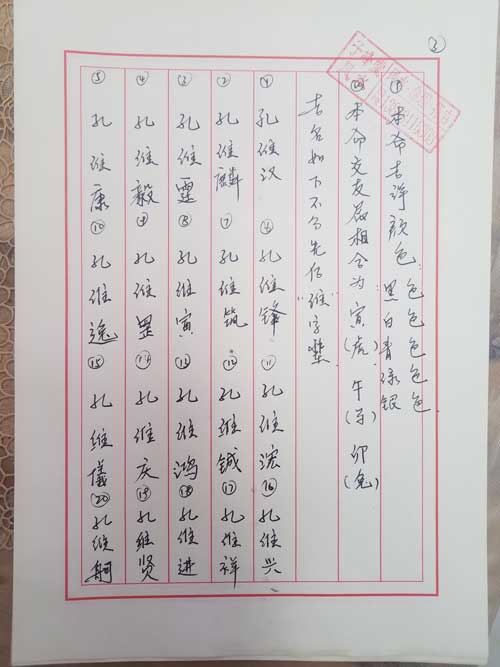 ③
①本命吉祥颜色:黑色 白色 青色 绿色 银色
②本命交友属相合为寅(虎)午(马)卯(兔)
吉名如下不分先后"维"字辈
①孔维汉 ⑥孔维锋 ⑪孔维浤 ⑯孔维兴
②孔维麟 ⑦孔维筑 ⑫孔维铖 ⑰孔维祥
③孔维霆 ⑧孔维寅 ⑬孔维鸿 ⑱孔维进
④孔维毅 ⑨孔维罡 ⑭孔维庆 ⑲孔维贤
⑤孔维康 ⑩孔维逸 ⑮孔维儀 ⑳孔维舸